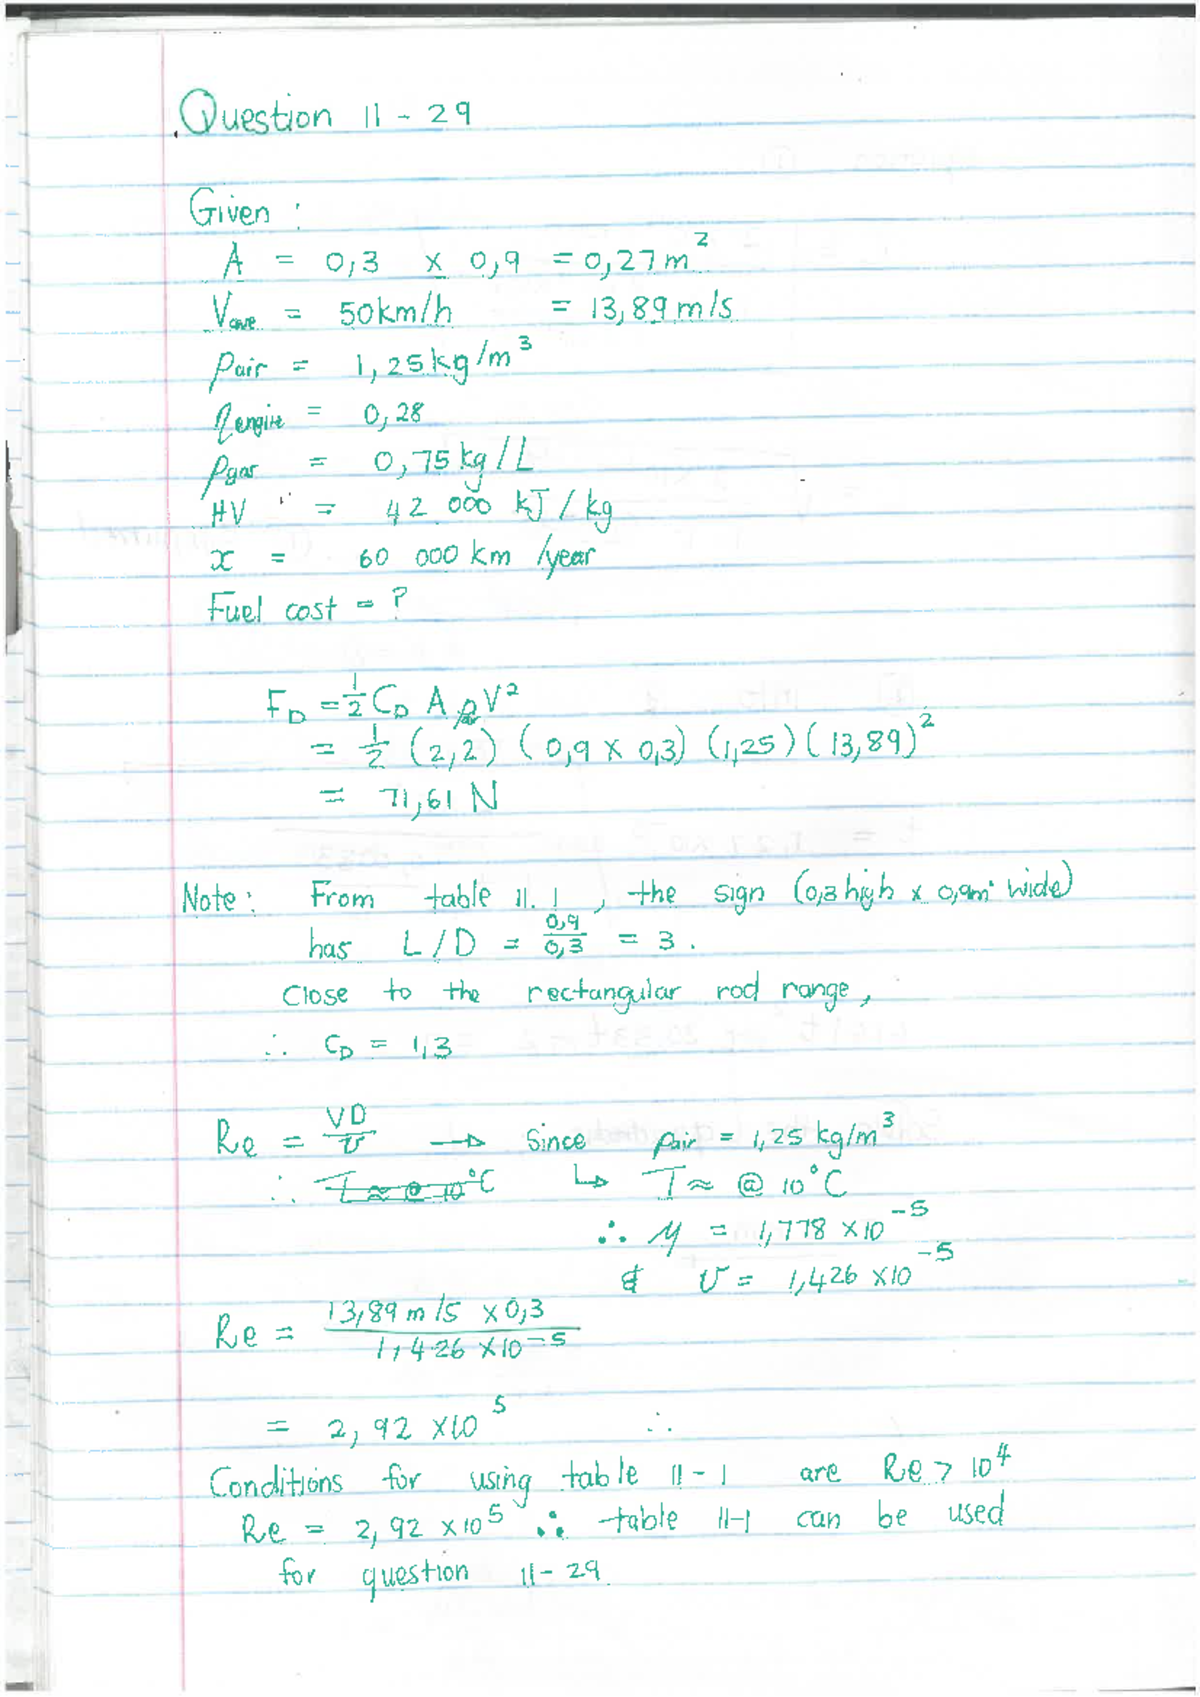 Question 11 - 29
Given :
A = 0,3 x 0,9 = 0,27 m²
Vave = 50km/h = 13,89 m/s
ρair = 1,25 kg/m³
ηengine = 0,28
ρgas = 0,75 kg/L
HV = 42 000 kJ/kg
x = 60 000 km /year
Fuel cost = ?
F_D = 1/2 C_D A ρ V²
= 1/2 (2,2) (0,9 x 0,3) (1,25) (13,89)²
= 71,61 N
Note: From table 11.1, the sign (0,3 high x 0,9m wide)
has L/D = 0,9/0,3 = 3.
Close to the rectangular rod range,
∴ C_D = 1,3
Re = VD/υ → Since ρair = 1,25 kg/m³
∴ T ≈ @ 10°C ↳ T ≈ @ 10°C
∴ μ = 1,778 x10⁻⁵
& υ = 1,426 x10⁻⁵
Re = 13,89 m/s x 0,3 / 1,426 x10⁻⁵
= 2,92 x10⁵ ∴
Conditions for using table 11-1 are Re > 10⁴
Re = 2,92 x10⁵ ∴ table 11-1 can be used
for question 11-29